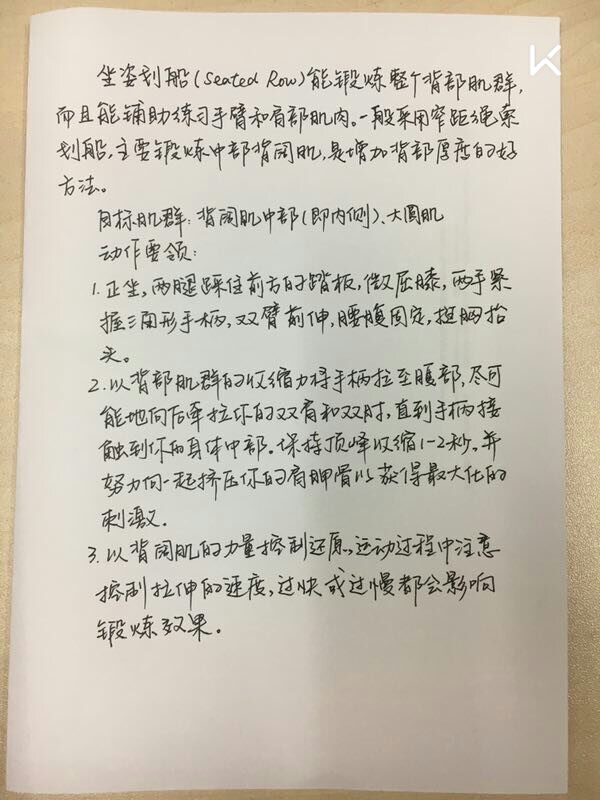 坐姿划船(Seated Row)能锻炼整个背部肌群,
而且能辅助练习手臂和肩部肌肉。一般采用窄距绳索
划船,主要锻炼中部背阔肌,是增加背部厚度的好
方法。
目标肌群:背阔肌中部(即内侧)、大圆肌
动作要领:
1.正坐,两腿踩住前方的踏板,微屈膝,两手紧
握三角形手柄,双臂前伸,腰腹固定,挺胸抬
头。
2.以背部肌群的收缩力将手柄拉至腹部,尽可
能地向后牵拉你的双肩和双肘,直到手柄接
触到你的身体中部。保持顶峰收缩1-2秒。并
努力向一起挤压你的肩胛骨以获得最大化的
刺激.
3.以背阔肌的力量控制还原。运动过程中注意
控制拉伸的速度,过快或过慢都会影响
锻炼效果。